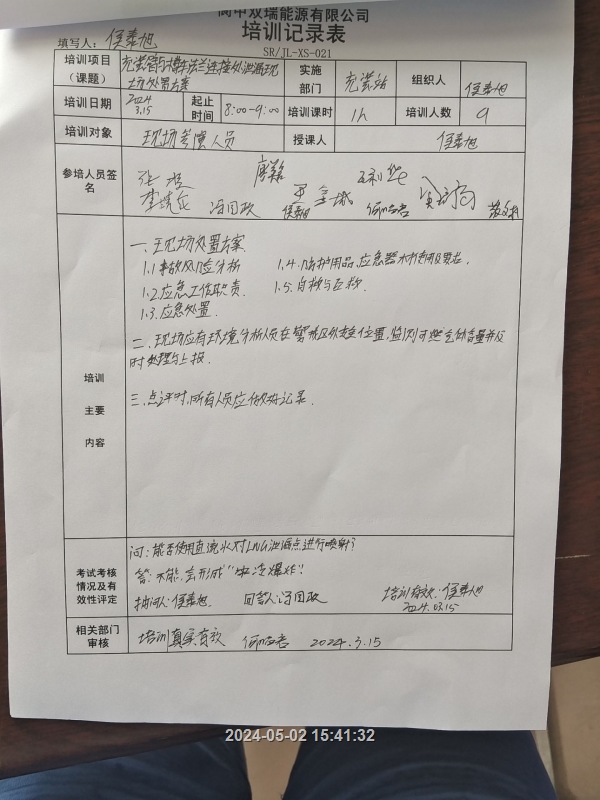 阆中双瑞能源有限公司
培训记录表
填写人：侯秦旭
SR/JL-XS-021
培训项目（课题） 充装管与槽车法兰连接处泄漏现场处置方案 实施部门 充装站 组织人 侯秦旭
培训日期 2024 3.15 起止时间 8:00-9:00 培训课时 1h 培训人数 9
培训对象 现场考怀人员 授课人 侯秦旭
参培人员签名
培训主要内容
一、现场处置方案
1.1 事故风险分析 1.4. 防护用品、应急器材使用及要求.
1.2. 应急工作职责. 1.5. 自救与互救.
1.3. 应急处置.
二、现场应有环境分析人员在警戒区外安全位置，监测可燃气体含量并及
时处理与上报.
三、点评时，所有人员应做好记录.
考试考核情况及有效性评定
问：能否使用直流水对LNG泄漏点进行喷射？
答：不能，会形成“冷爆炸”！
提问人：侯秦旭. 回答人：冯国政 培训有效：侯秦旭
2024.03.15
相关部门审核 培训真实有效 2024.3.15
2024-05-02 15:41:32